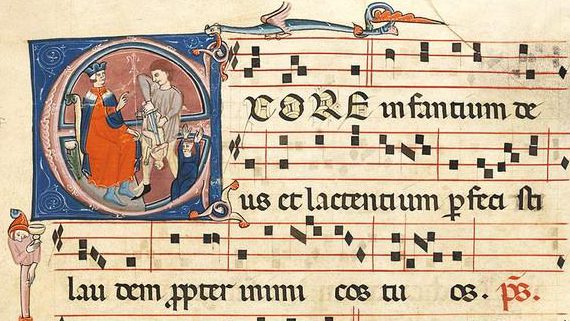 EXORE infantium de
us et lactentium pfeci sti
lau dem ppter inimi cos tu os. ps.